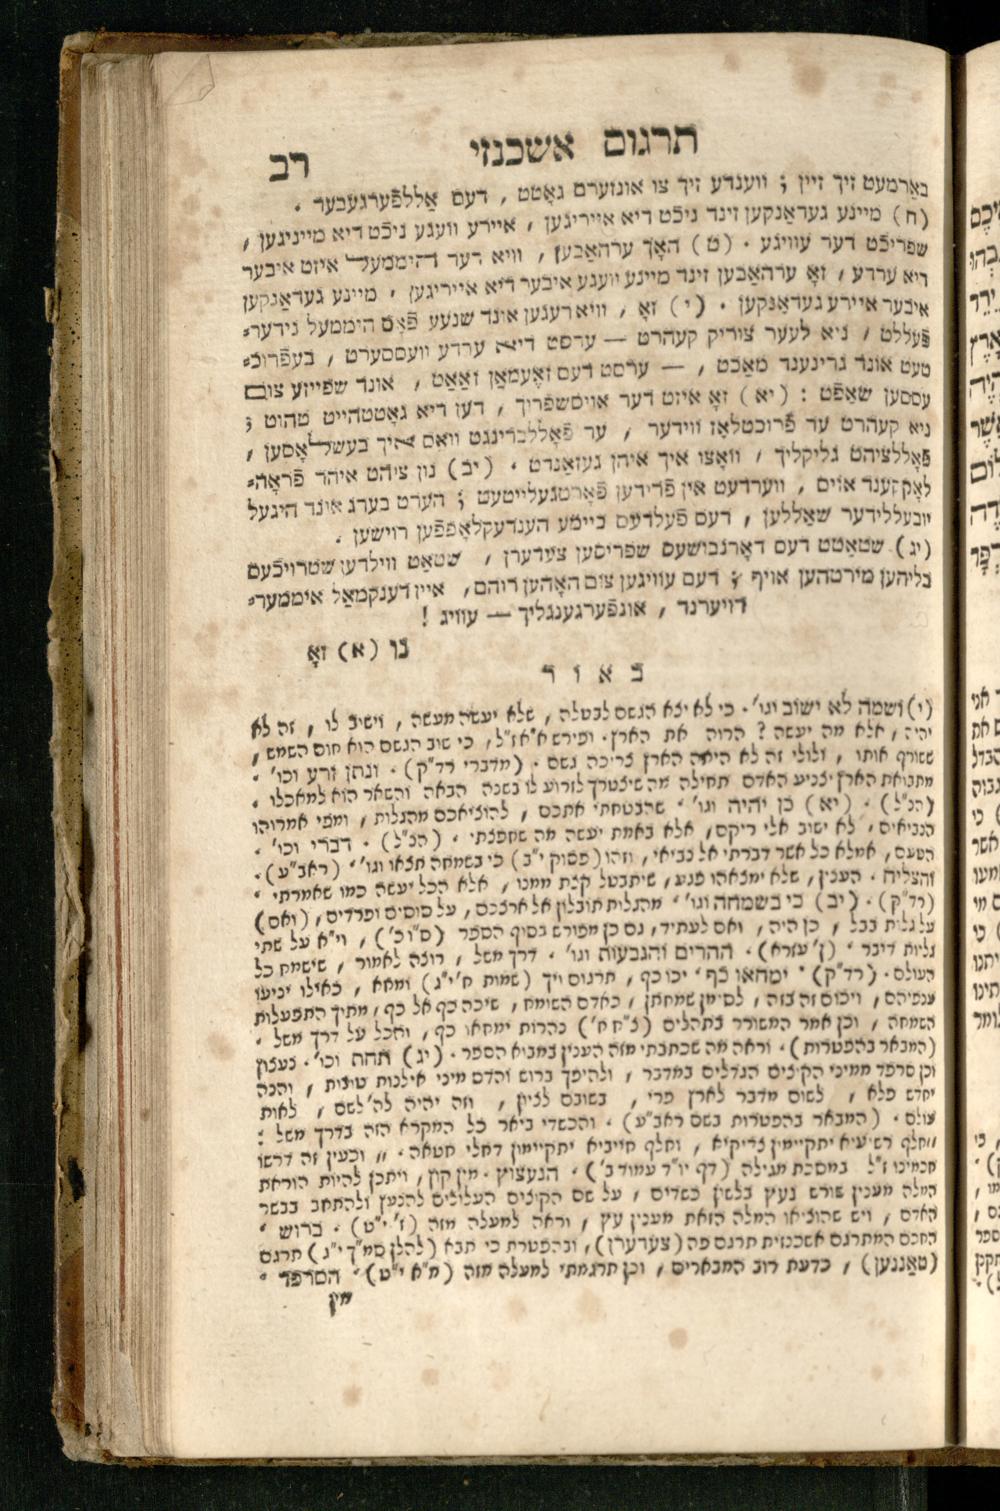 תרגום אשכנזי
רב
באַרמעט זיך זיין ; ווענדע זיך צו אונזערם גאָטט , דעם אַללפֿערגעבער .
(ח) מיינע געדאַנקען זינד ניכֿט דיא אייריגען , איירע וועגע ניכֿט דיא מייניגען ,
שפריכֿט דער עוויגע . (ט) האָך ערהאַבען , וויא דער היממעל איזט איבער
דיא ערדע , זאָ ערהאַבען זינד מיינע וועגע איבער דיא אייריגען , מיינע געדאַנקען
איבער איירע געדאַנקען . (י) זאָ , וויא רעגען אונד שנעע פֿאָם היממעל נידער=
פֿעללט , ניא לעער צוריק קעהרט — ערסט דיא ערדע וועססערט , בעפֿרוכֿ=
טעט אונד גרינענד מאַכֿט , — ערסט דעם זאֶעמאַן זאַאַט , אונד שפייזע צום
עססען שאַפֿט : (יא) זאָ איזט דער אויסשפּריך , דען דיא גאָטטהייט טהוט ;
ניא קעהרט ער פֿרוכטלאָז ווידער , ער פֿאָללברינגט וואס איך בעשלאָסען ,
פֿאָללציהט גליקליך , וואָצו איך איהן געזאַנדט . (יב) נון ציהט איהר פֿראָה=
לאָקקענד אויס , ווערדעט אין פֿרידען פֿאָרטגעלייטעט ; הערט בערג אונד היגעל
יובעללידער שאַללען , דעם פֿעלדעס ביימע הענדעקלאָפּפֿען רוישען .
(יג) שטאַטט דעס דאָרנבושעס שפריסען צעדערן , שטאַט ווילדען שטרויכֿעס
בליהען מירטהען אויף ; דעם עוויגען צום האָהען רוהם , איין דענקמאַל איממער=
דויערנד , אונפֿערגענגליך — עוויג !
נו (א) זאָ
באור
(י) ושמה לא ישוב וגו' . כי לא יצא הגשם לבטלה , שלא יעשה מעשה , וישיב לו , זה לא
יהיה , אלא מה יעשה ? הרוה את הארץ . ופירש א"א ז"ל , כי שוב הגשם הוא חום השמש ,
ששורף אותו , ולולי זה לא היתה הארץ צריכה גשם . (מדברי רד"ק) . ונתן זרע וכו' .
מתבואת הארץ יצניע האדם תחילה מה שיצטרך לזרוע לו בשנה הבאה והשאר הוא למאכלו .
(הנ"ל) . (יא) כן יהיה וגו' . שהבטחתי אתכם , להוציאכם מהגלות , ומפי אמרוהו
הנביאים , לא ישוב אלי ריקם , אלא באמת יעשה מה שחפצתי . (הנ"ל) . דברי וכו' .
הטעם , אמלא כל אשר דברתי אל נביאי , וזהו (פסוק י"ב) כי בשמחה תצאו וגו' . (ראב"ע) .
והצליח . הענין , שלא ימצאהו פגע , שיתבטל קצת ממנו , אלא הכל יעשה כמו שאמרתי .
(רד"ק) . (יב) כי בשמחה וגו' . מהגלות תובלון אל ארצכם , על סוסים ופרדים , (ואם)
על גלות בבל , כן היה , ואם לעתיד , גם כן מפורש בסוף הספר (ס"ו כ') , וי"א על שתי
גליות דיבר . (ן' עזרא) . ההרים והגבעות וגו' . דרך משל , רוצה לאמור , שישמח כל
העולם . (רד"ק) . ימחאו כף . יכו כף , תרגום ויך (שמות ח' י"ג) ומחא , כאילו יניעו
ענפיהם , ויכום זה בזה , לסימן שמחתן , כאדם השומח , שיכה כף אל כף , מתוך התפעלות
השמחה , וכן אמר המשורר בתהלים (צ"ח ח') נהרות ימחאו כף , והכל על דרך משל .
(המבאר בהפטרות) . וראה מה שכתבתי מזה הענין במבוא הספר . (יג) תחת וכו' . נעצוץ
וכן סרפד ממיני הקוצים הגדלים במדבר , ולהיפך ברוש והדס מיני אילנות טובות , והנה
יחדש פלא , לשום מדבר לארץ פרי , בשובם לציון , וזה יהיה לה' לשם , לאות
עולם . (המבאר בהפטרות בשם ראב"ע) . והכשדי ביאר כל המקרא הזה בדרך משל :
,,חלף רשיעיא יתקיימין צדיקיא , וחלף חייביא יתקיימון דחלי חטאה . ,, וכעין זה דרשו
חכמינו ז"ל במסכת מגילה (דף יו"ד עמוד ב') . הנעצוץ . מין קוץ , ויתכן להיות הוראת
המלה מענין שורש נעץ בלשון כשדים , על שם הקוצים העלולים להנעץ ולהתחב בבשר
האדם , ויש שהוציאו המלה הזאת מענין עץ , וראה למעלה מזה (ז' י"ט) . ברוש .
החכם המתרגם אשכנזית תרגם פה (צעדערן) , ובהפטרת כי תבא (להלן סמ"ך י"ג) תרגם
(טאַננען) , כדעת רוב המבארים , וכן תרגמתי למעלה מזה (מ"א י"ט) . הסרפד .
מין